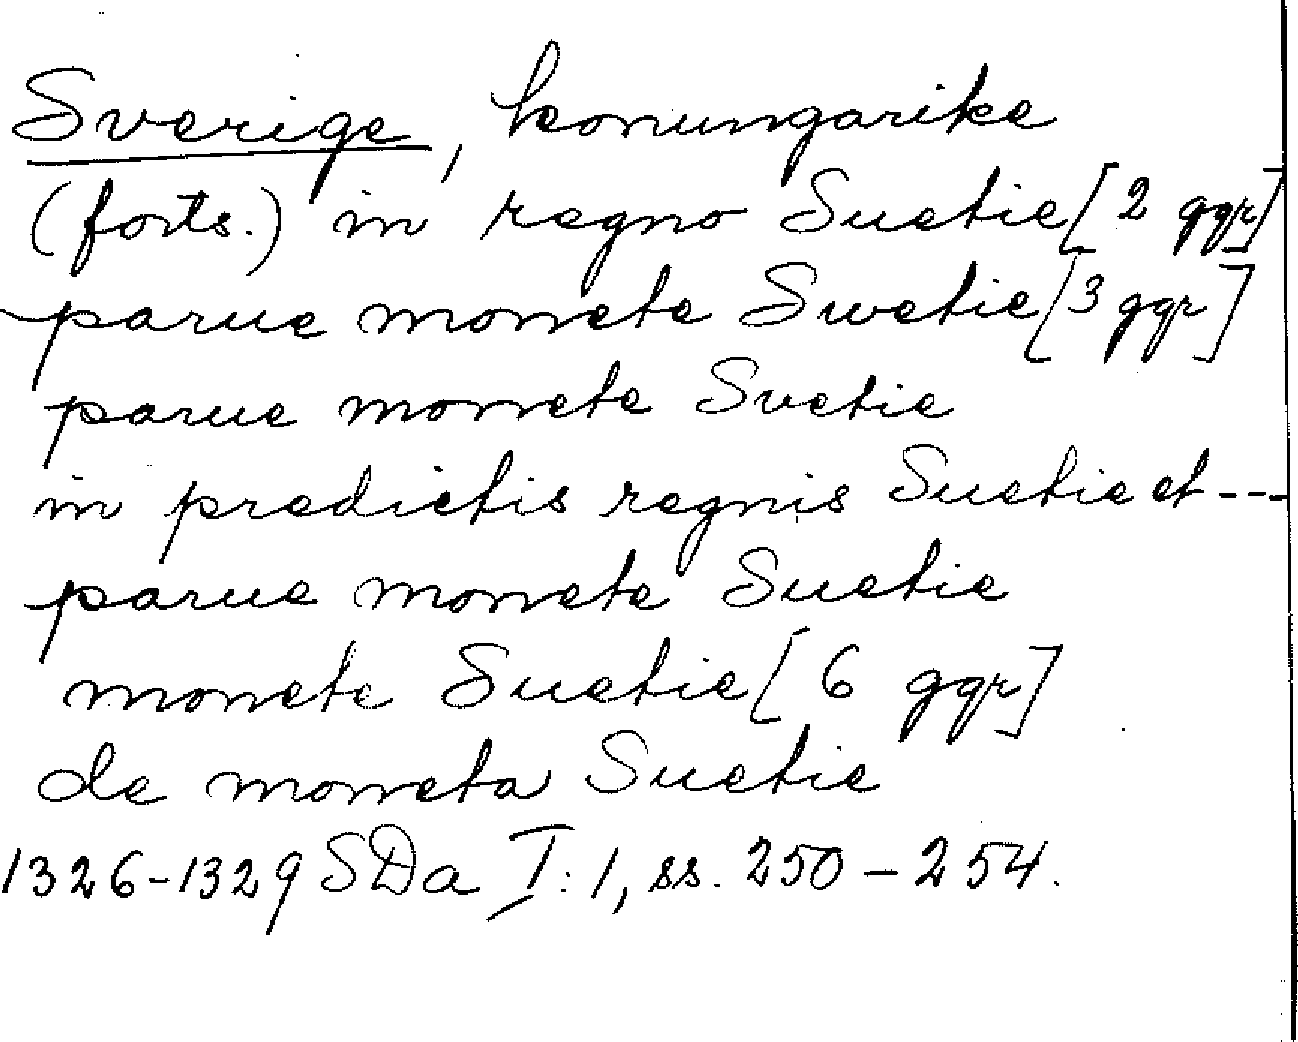 Sverige, konungarike
(forts.) in regno Suetie [2 ggr]
parue monete Swetie [3 ggr]
parue monete Svetie
in predictis regnis Suetie et ---
parue monete Suetie
monete Suetie [6 ggr]
de moneta Suetie
1326-1329 SDa I:1, ss. 250-254.